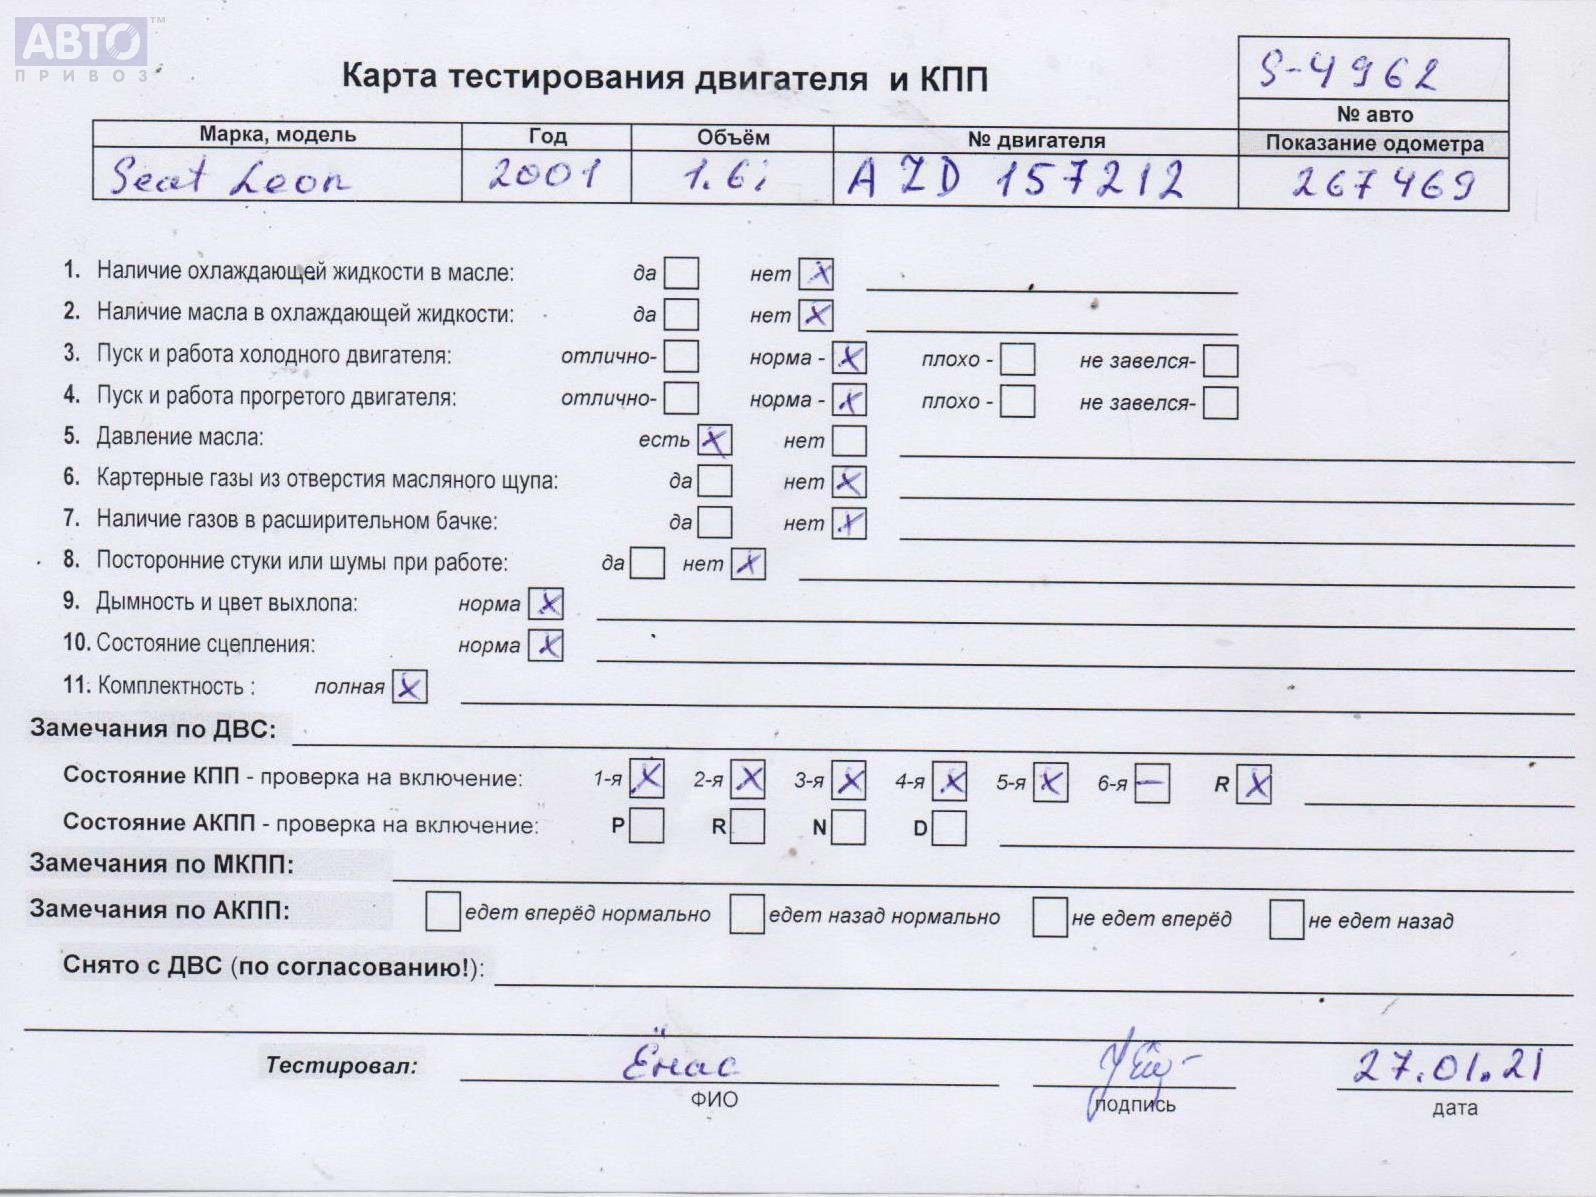 АВТО™
ПРИВОЗ
Карта тестирования двигателя и КПП
S-4962
№ авто
Марка, модель Год Объём № двигателя Показание одометра
Seat Leon 2001 1.6i AZD 157212 267469
1. Наличие охлаждающей жидкости в масле: да нет X
2. Наличие масла в охлаждающей жидкости: да нет X
3. Пуск и работа холодного двигателя: отлично- норма - X плохо - не завелся-
4. Пуск и работа прогретого двигателя: отлично- норма - X плохо - не завелся-
5. Давление масла: есть X нет
6. Картерные газы из отверстия масляного щупа: да нет X
7. Наличие газов в расширительном бачке: да нет X
8. Посторонние стуки или шумы при работе: да нет X
9. Дымность и цвет выхлопа: норма X
10. Состояние сцепления: норма X
11. Комплектность : полная X
Замечания по ДВС:
Состояние КПП - проверка на включение: 1-я X 2-я X 3-я X 4-я X 5-я X 6-я — R X
Состояние АКПП - проверка на включение: P R N D
Замечания по МКПП:
Замечания по АКПП: едет вперёд нормально едет назад нормально не едет вперёд не едет назад
Снято с ДВС (по согласованию!):
Тестировал: Ёнас 27.01.21
ФИО подпись дата